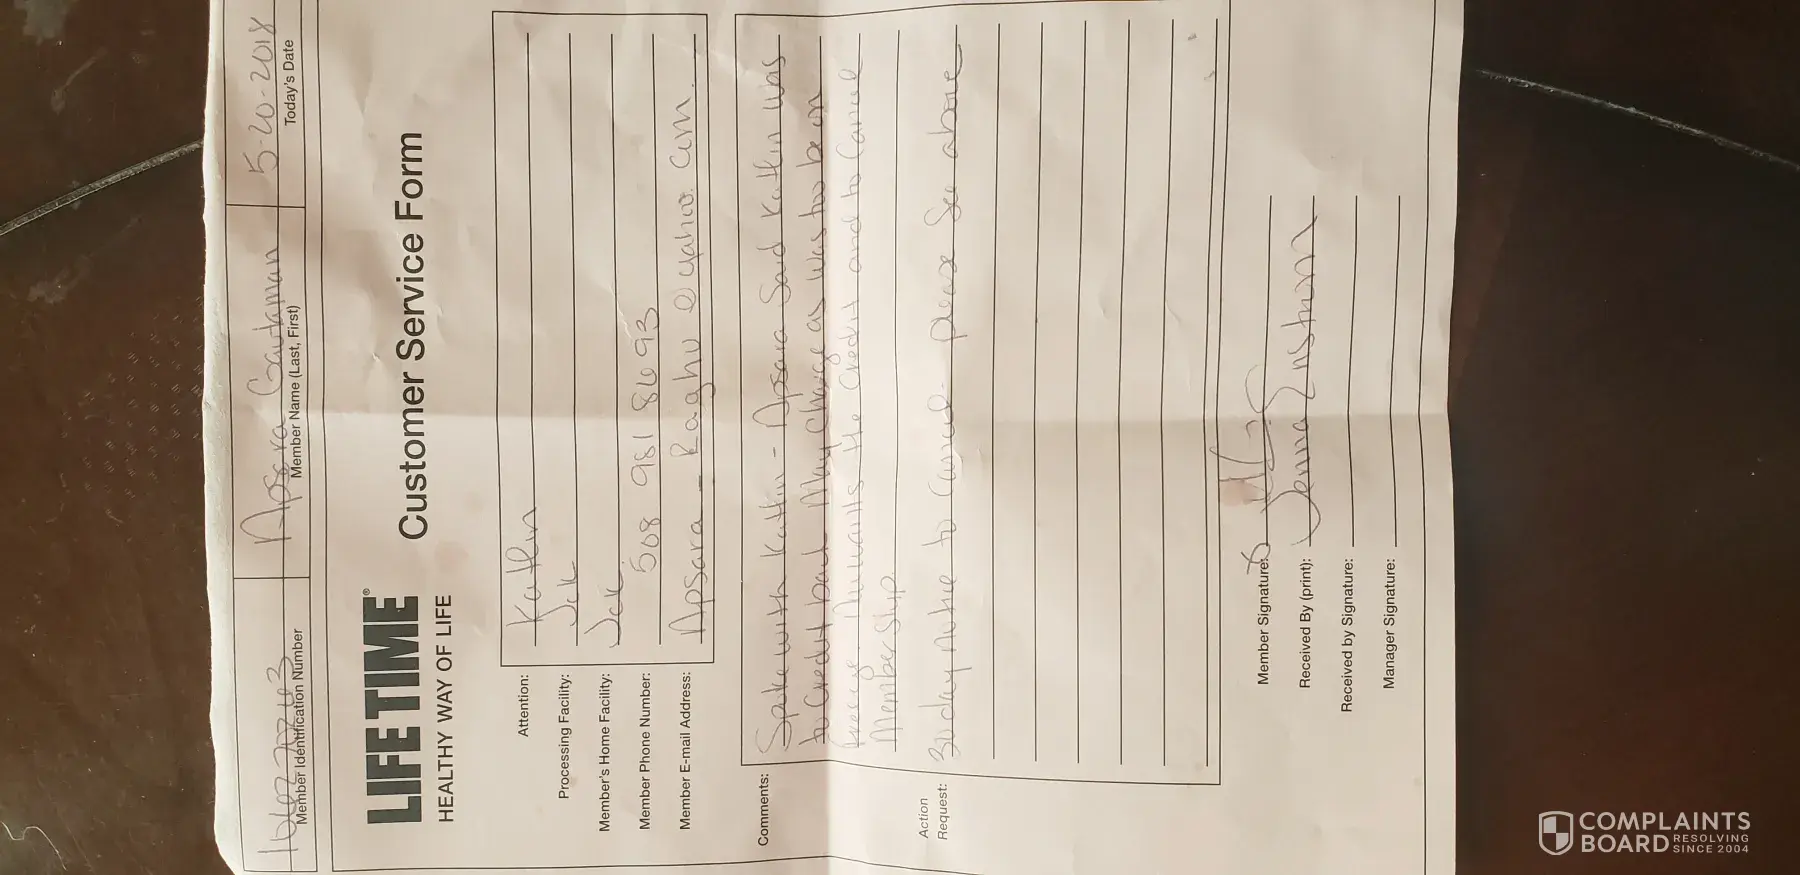 Apsara Gautaman 5-20-2018
Member Identification Number Member Name (Last, First) Today's Date
LIFE TIME®
HEALTHY WAY OF LIFE
Customer Service Form
Attention: Katlin
Processing Facility:
Member's Home Facility:
Member Phone Number: 508 981 8693
Member E-mail Address: Apsara - Raghu @ yahoo. com
Comments: Spoke with Katlin - Apsara Said Katlin was
to Credit back May Charge as was to be on
the Credit and to Cancel
Membership
Action Request: 30 day notice to Cancel - please See above
Member Signature: X
Received By (print): Jenna
Received by Signature:
Manager Signature:
COMPLAINTS
BOARD RESOLVING
SINCE 2004